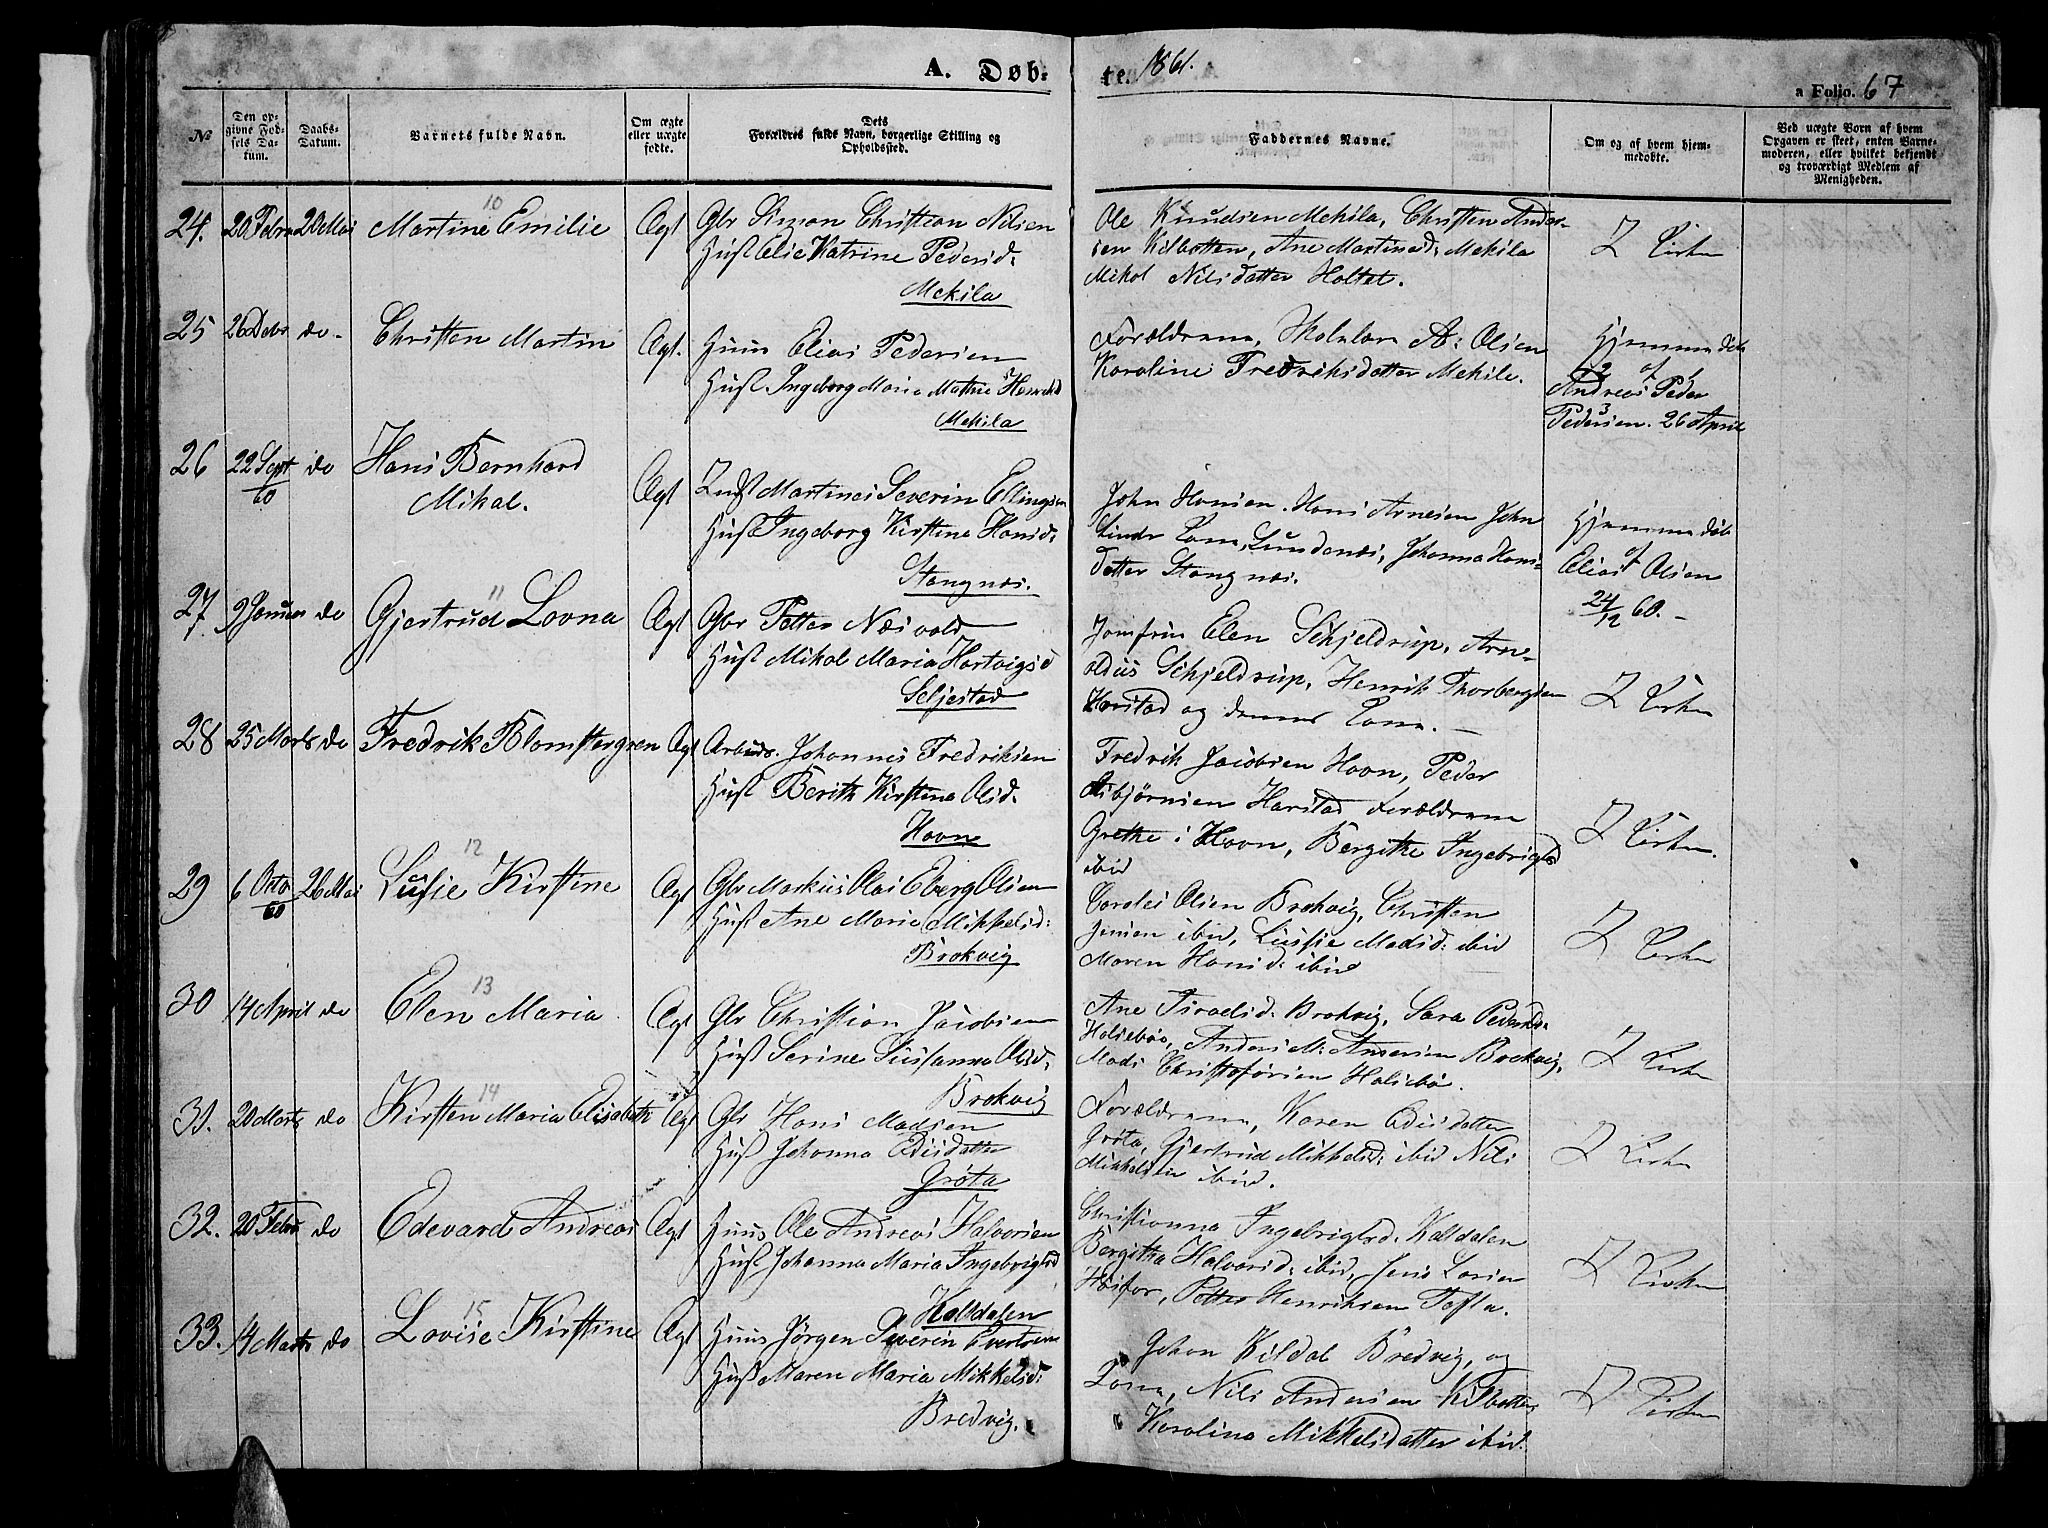 A. Døb-
te. 1861.
a Folio. 67
No
Den op-
givne Fød-
sels Da-
tum.
Daabs-
Datum.
Barnets fulde Navn.
Om ægte
eller uægte
fødte.
Dets
Forældres fulde Navn, borgerlige Stilling og
Opholdssted.
Faddernes Navne.
Om og af hvem hjem-
medøbte.
Ved uægte Børn af hvem
Opgaven er skeet, enten Barne-
moderen, eller hvilket bekjendt
og troværdigt Medlem af
Menigheden.
24. 20 Febru 20 Mai
10
Martine Emilie
Ægt
Gbr Simon Christian Nilsen
Hust Elie Katrine Pedersd:
Mekila
Ole Knudsen Mekila, Christen Ander-
sen Kilbotten, Ane Martinesd: Mekila
Mikol Nilsdatter Holtet.
I Kirken
25 26 do-
Christen Martin
Ægt.
Huus Elias Pedersen
Hust. Ingeborg Maria Mathea
Mekila
Forældrene, A: Olsen
Karoline Fredriksdatter Mekila.
Hjemmedøbt
af
Andreas Peder
Pedersen. 26 April
26 22 Sept/60 do
Hans Bernhard
Mikal.
Ægt
Indst Martines Severin Ellingsen
Hust Ingeborg Kirstina Hansd:
Stangnæs.
John Hansen. Hans Arnesen John
Kone, Sundenæs, Johanna Hans-
datter Stangnæs.
Hjemmedøbt
af
Elias Olsen
24/12 60.-
27. 9 Januar do
11
Gjertrud Lovna
Ægt
Gbr Petter Næsvold
Hust Mikal Maria Hartvigsd
Seljestad
Jomfru Elen Schjeldrup, Arn-
oldus Schjeldrup, Henrik Thorbergsen
Harstad og dennes Kone.-
I Kirken
28 25 Marts do
Fredrik Blomstergren
Ægt
Arbeids. Johannes Fredriksen
Hust Berith Kirstina Olsd.
Havn
Fredrik Jacobsen Havn, Peder
Asbjørnsen Harstad Forældrene
Grethe i Havn, Bergithe Ingebrigtsd
ibid
I Kirken.
29 6 Octo/60 26 Mai
12
Lusie Kirstine
Ægt
Gbr Markus Olai Eberg Olsen
Hust Ane Maria Mikkelsd:
Brokvig
Olsen Brokvig, Christen
Jensen ibid, Lusie Madsd: ibid
Maren Hansd: ibid
I Kirken
30 14 April do
13
Elen Maria
Ægt
Gbr Christian Jacobsen
Hust Serine Susanna Olsd:
Brokvig
Ane Israelsd: Brokvig, Sara Pedersd:
Halsebøe, Anders M: Andersen Brokvig,
Mads Christofersen Halsebø.
I Kirken
31. 20 Marts do
14
Kirsten Maria Elisabeth
Ægt
Gbr Hans Madsen
Hust Johanna Edisdatter
Grøta
Forældrene, Karen Edisdatter
Grøta, Gjertrud Mikkelsd: ibid Nils
Mikkelsen ibid.
I Kirken
32. 20 Febr do
Edevard Andreas
Ægt
Huus Ole Andreas Halvorsen
Hust Johanna Maria Ingebrigtsd
Kaldalen
Christianna Ingebrigtsd. Kalldalen
Bergitha Halvorsd: ibid, Jens Larsen
Petter Henriksen Tofta.
I Kirken
33. 14 Marts do
15
Lovise Kirstine
Ægt
Huus Jørgen Severin Evertsen
Hust Maren Maria Mikkelsd:
Bredvig.
Johan Kildal Bredvig, og
Kone, Nils Andersen Kilbotten
Karolina Mikkelsdatter ibid.
I Kirken